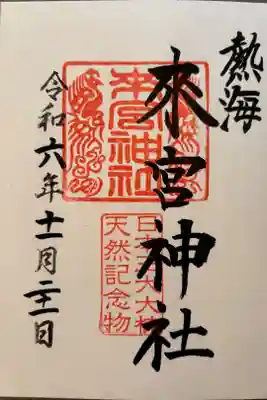 熱海
來宮神社
來宮神社
日本大楠
天然記念物
令和六年十一月日